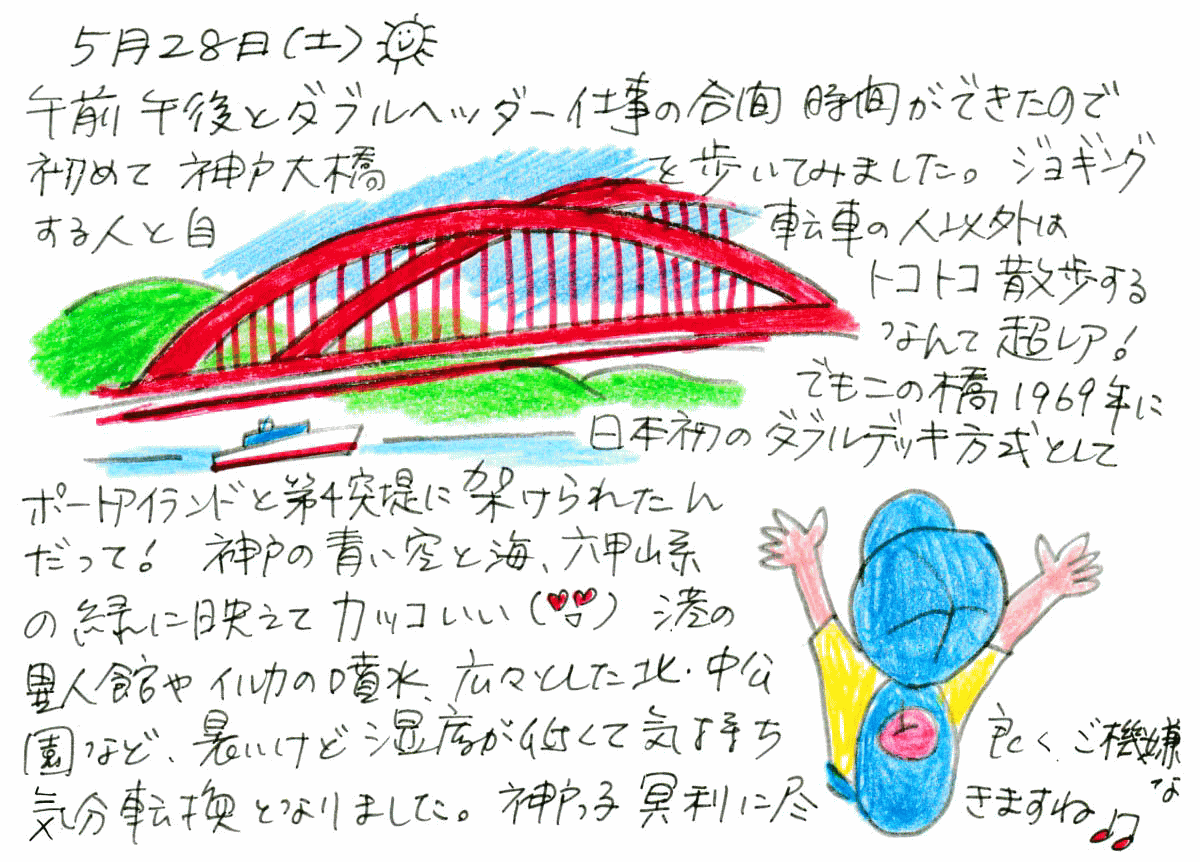 5月28日(土)
午前 午後とダブルヘッダー仕事の合間 時間ができたので
初めて 神戸大橋を歩いてみました。ジョギング
する人と自転車の人以外は
トコトコ散歩する
なんて超レア!
でもこの橋1969年に
日本初のダブルデッキ方式として
ポートアイランドと第4突堤に架けられたん
だって! 神戸の青い空と海、六甲山系
の緑に映えてカッコいい() 港の
異人館やイルカの噴水、広々とした北・中公
園など、暑いけど湿度が低くて気持ち良く、ご機嫌な
気分転換となりました。神戸っ子冥利に尽きますね